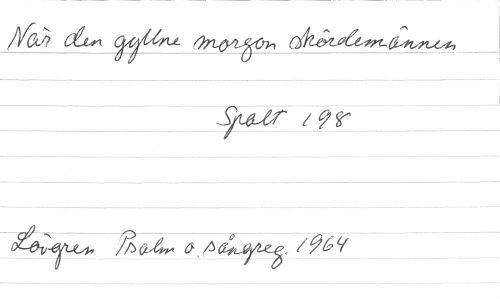 När den gyllne morgon skördemännen
Spalt 198
Lövgren Psalm o. sångreg. 1964